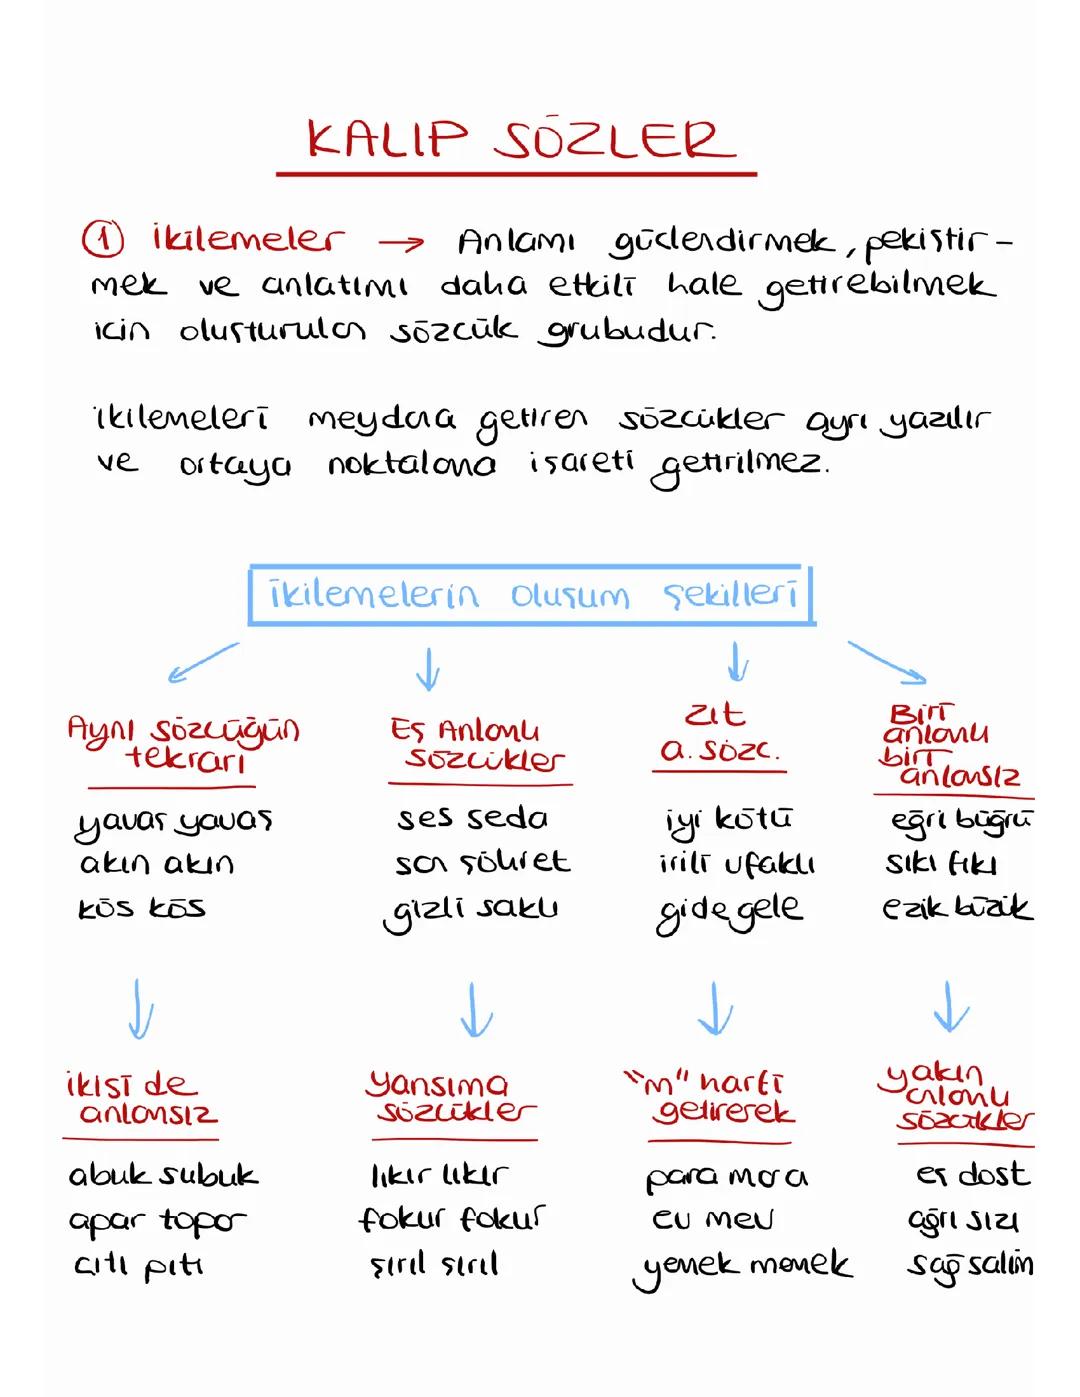 KALIP SÖZLER
1 İkilemeler → Anlamı güçlendirmek, pekiştir-
mek ve anlatımı daha etkili hale getirebilmek
için oluşturulan sözcük grubudur.
İkilemeleri meydana getiren sözcükler ayrı yazılır
ve ortaya noktalama işareti getirilmez.
İkilemelerin oluşum şekilleri
Aynı sözcüğün
tekrarı
yavaş yavaş
akın akın
kös kös
Eş Anlamlı
sözcükler
ses seda
şan şöhret
gizli saklı
Zıt
a. sözc.
iyi kötü
irili ufaklı
gide gele
Biri
anlamlı
biri
anlamsız
eğri büğrü
sıkı fıkı
ezik büzük
ikisi de
anlamsız
abuk subuk
apar topar
çıtı pıtı
Yansıma
sözcükler
lıkır lıkır
fokur fokur
şırıl şırıl
"m" harfi
getirerek
para mara
ev mev
yemek memek
yakın
anlamlı
sözcükler
eş dost
ağrı sızı
sağ salim